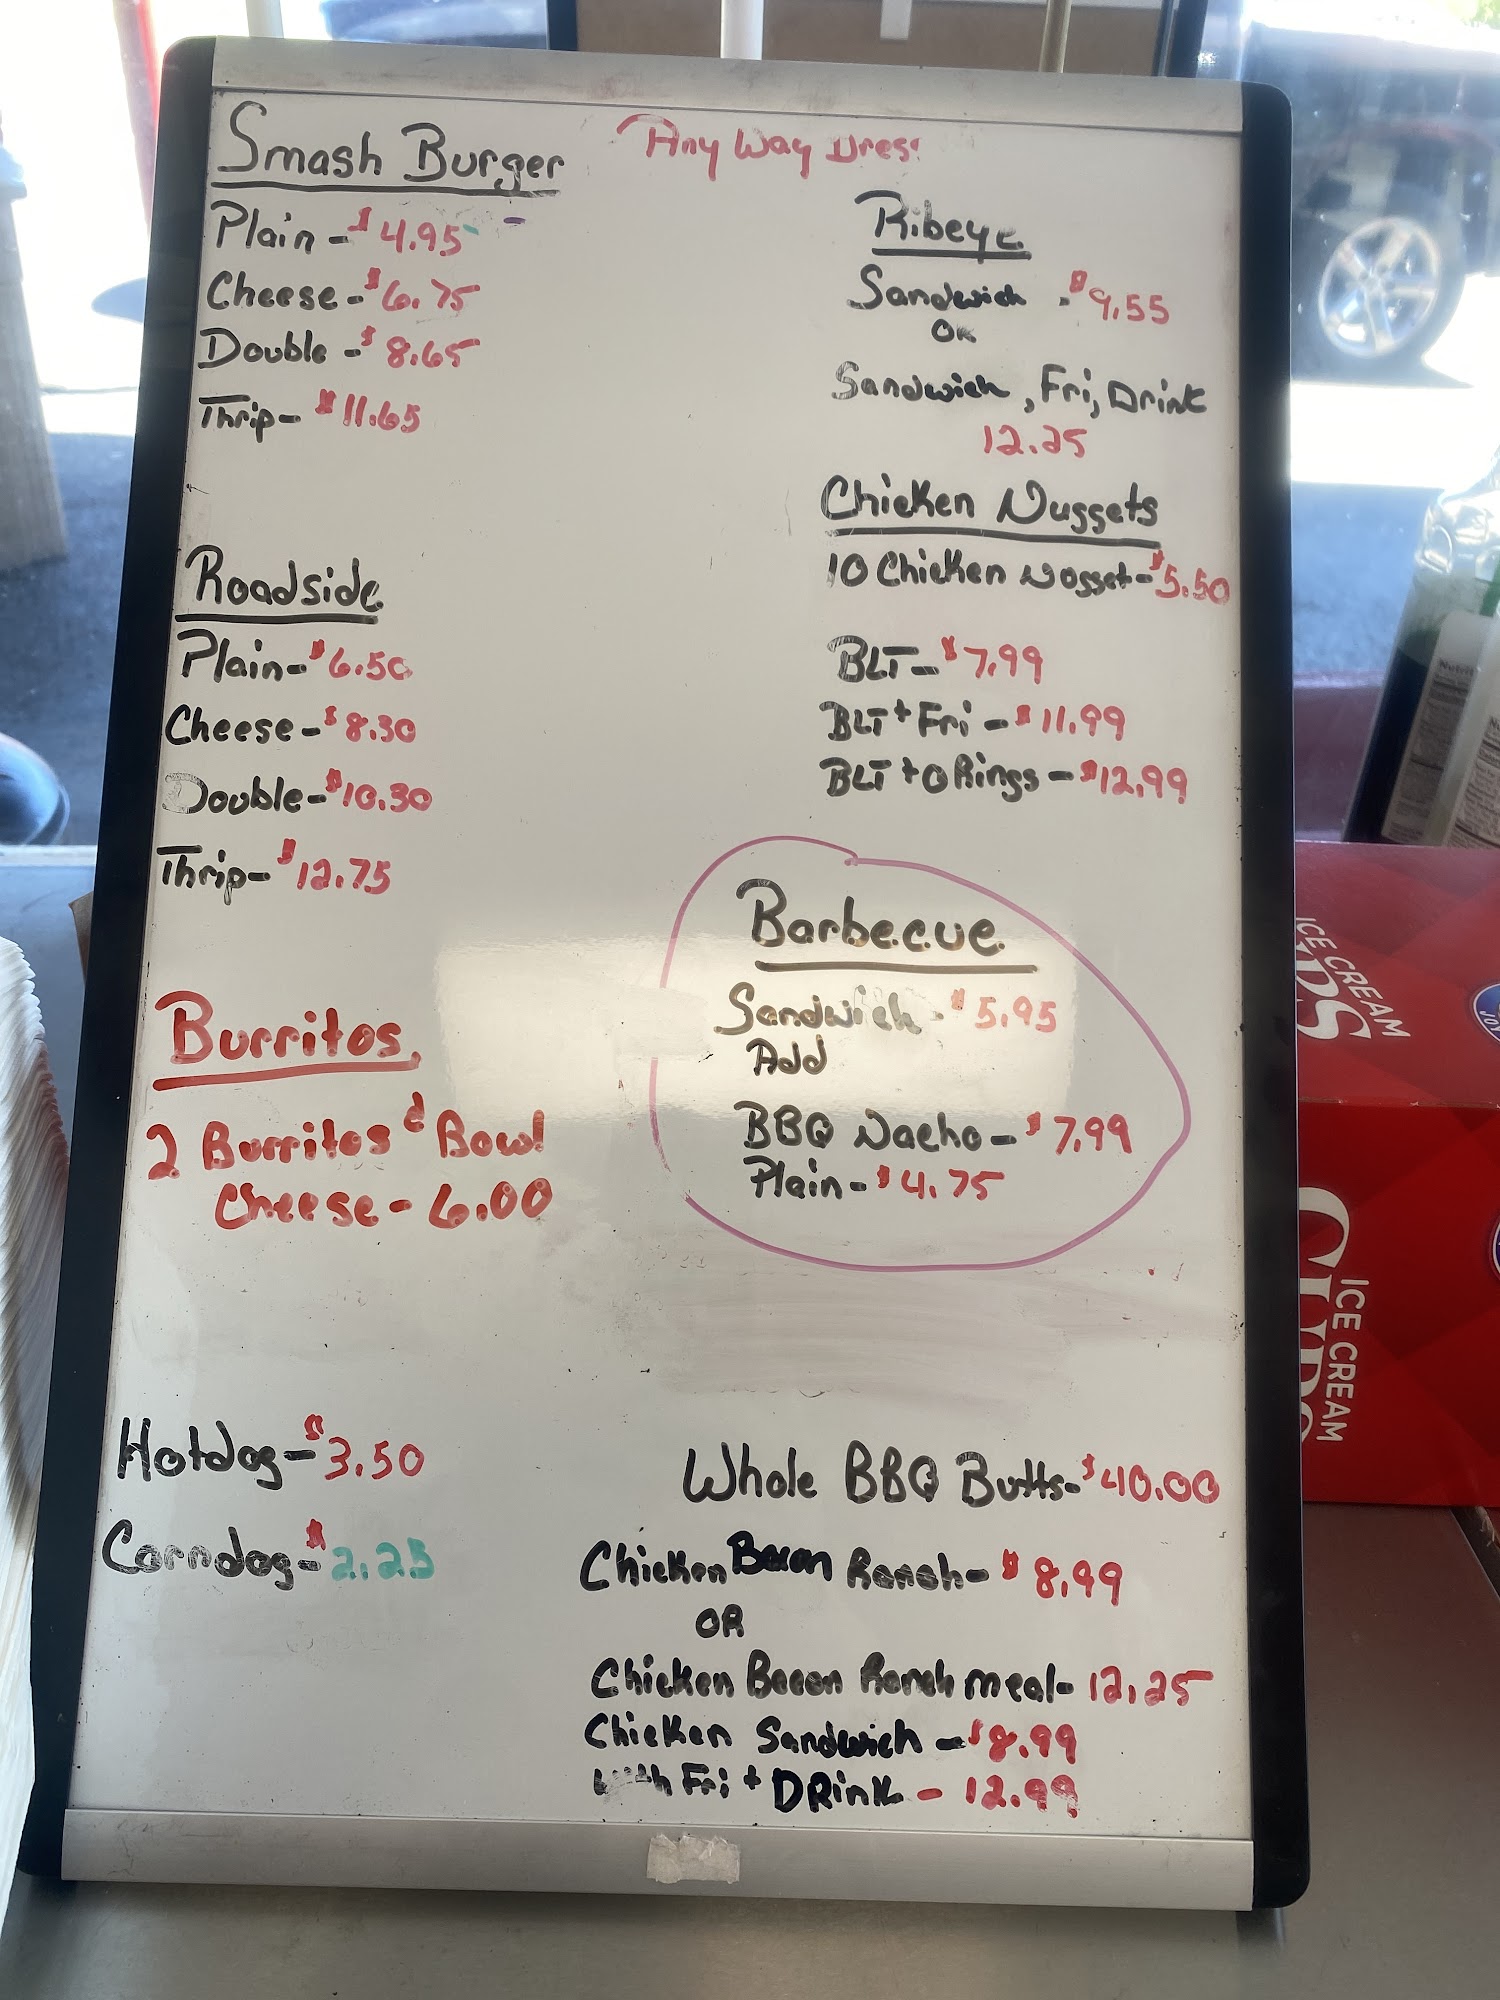 Smash Burger
Any Way Dress
Plain - $4.95
Cheese - $6.75
Double - $8.65
Thrip - $11.65
Roadside
Plain - $6.50
Cheese - $8.30
Double - $10.30
Thrip - $12.75
Burritos
2 Burritos & Bowl
Cheese - 6.00
Hotdog - $3.50
Corndog - $2.25
Ribeye
Sandwich - $9.55
OR
Sandwich, Fri, Drink
12.25
Chicken Nuggets
10 Chicken Nogget - $5.50
BLT - $7.99
BLT + Fri - $11.99
BLT + O Rings - $12.99
Barbecue
Sandwich - $5.95
Add
BBQ Nacho - $7.99
Plain - $4.75
Whole BBQ Butts - $40.00
Chicken Bacon Ranch - $8.99
OR
Chicken Bacon Ranch meal - 12.25
Chicken Sandwich - $8.99
with Fri + DRink - 12.99
ICE CREAM
ICE CREAM
CUPS
JOY
Nutrit